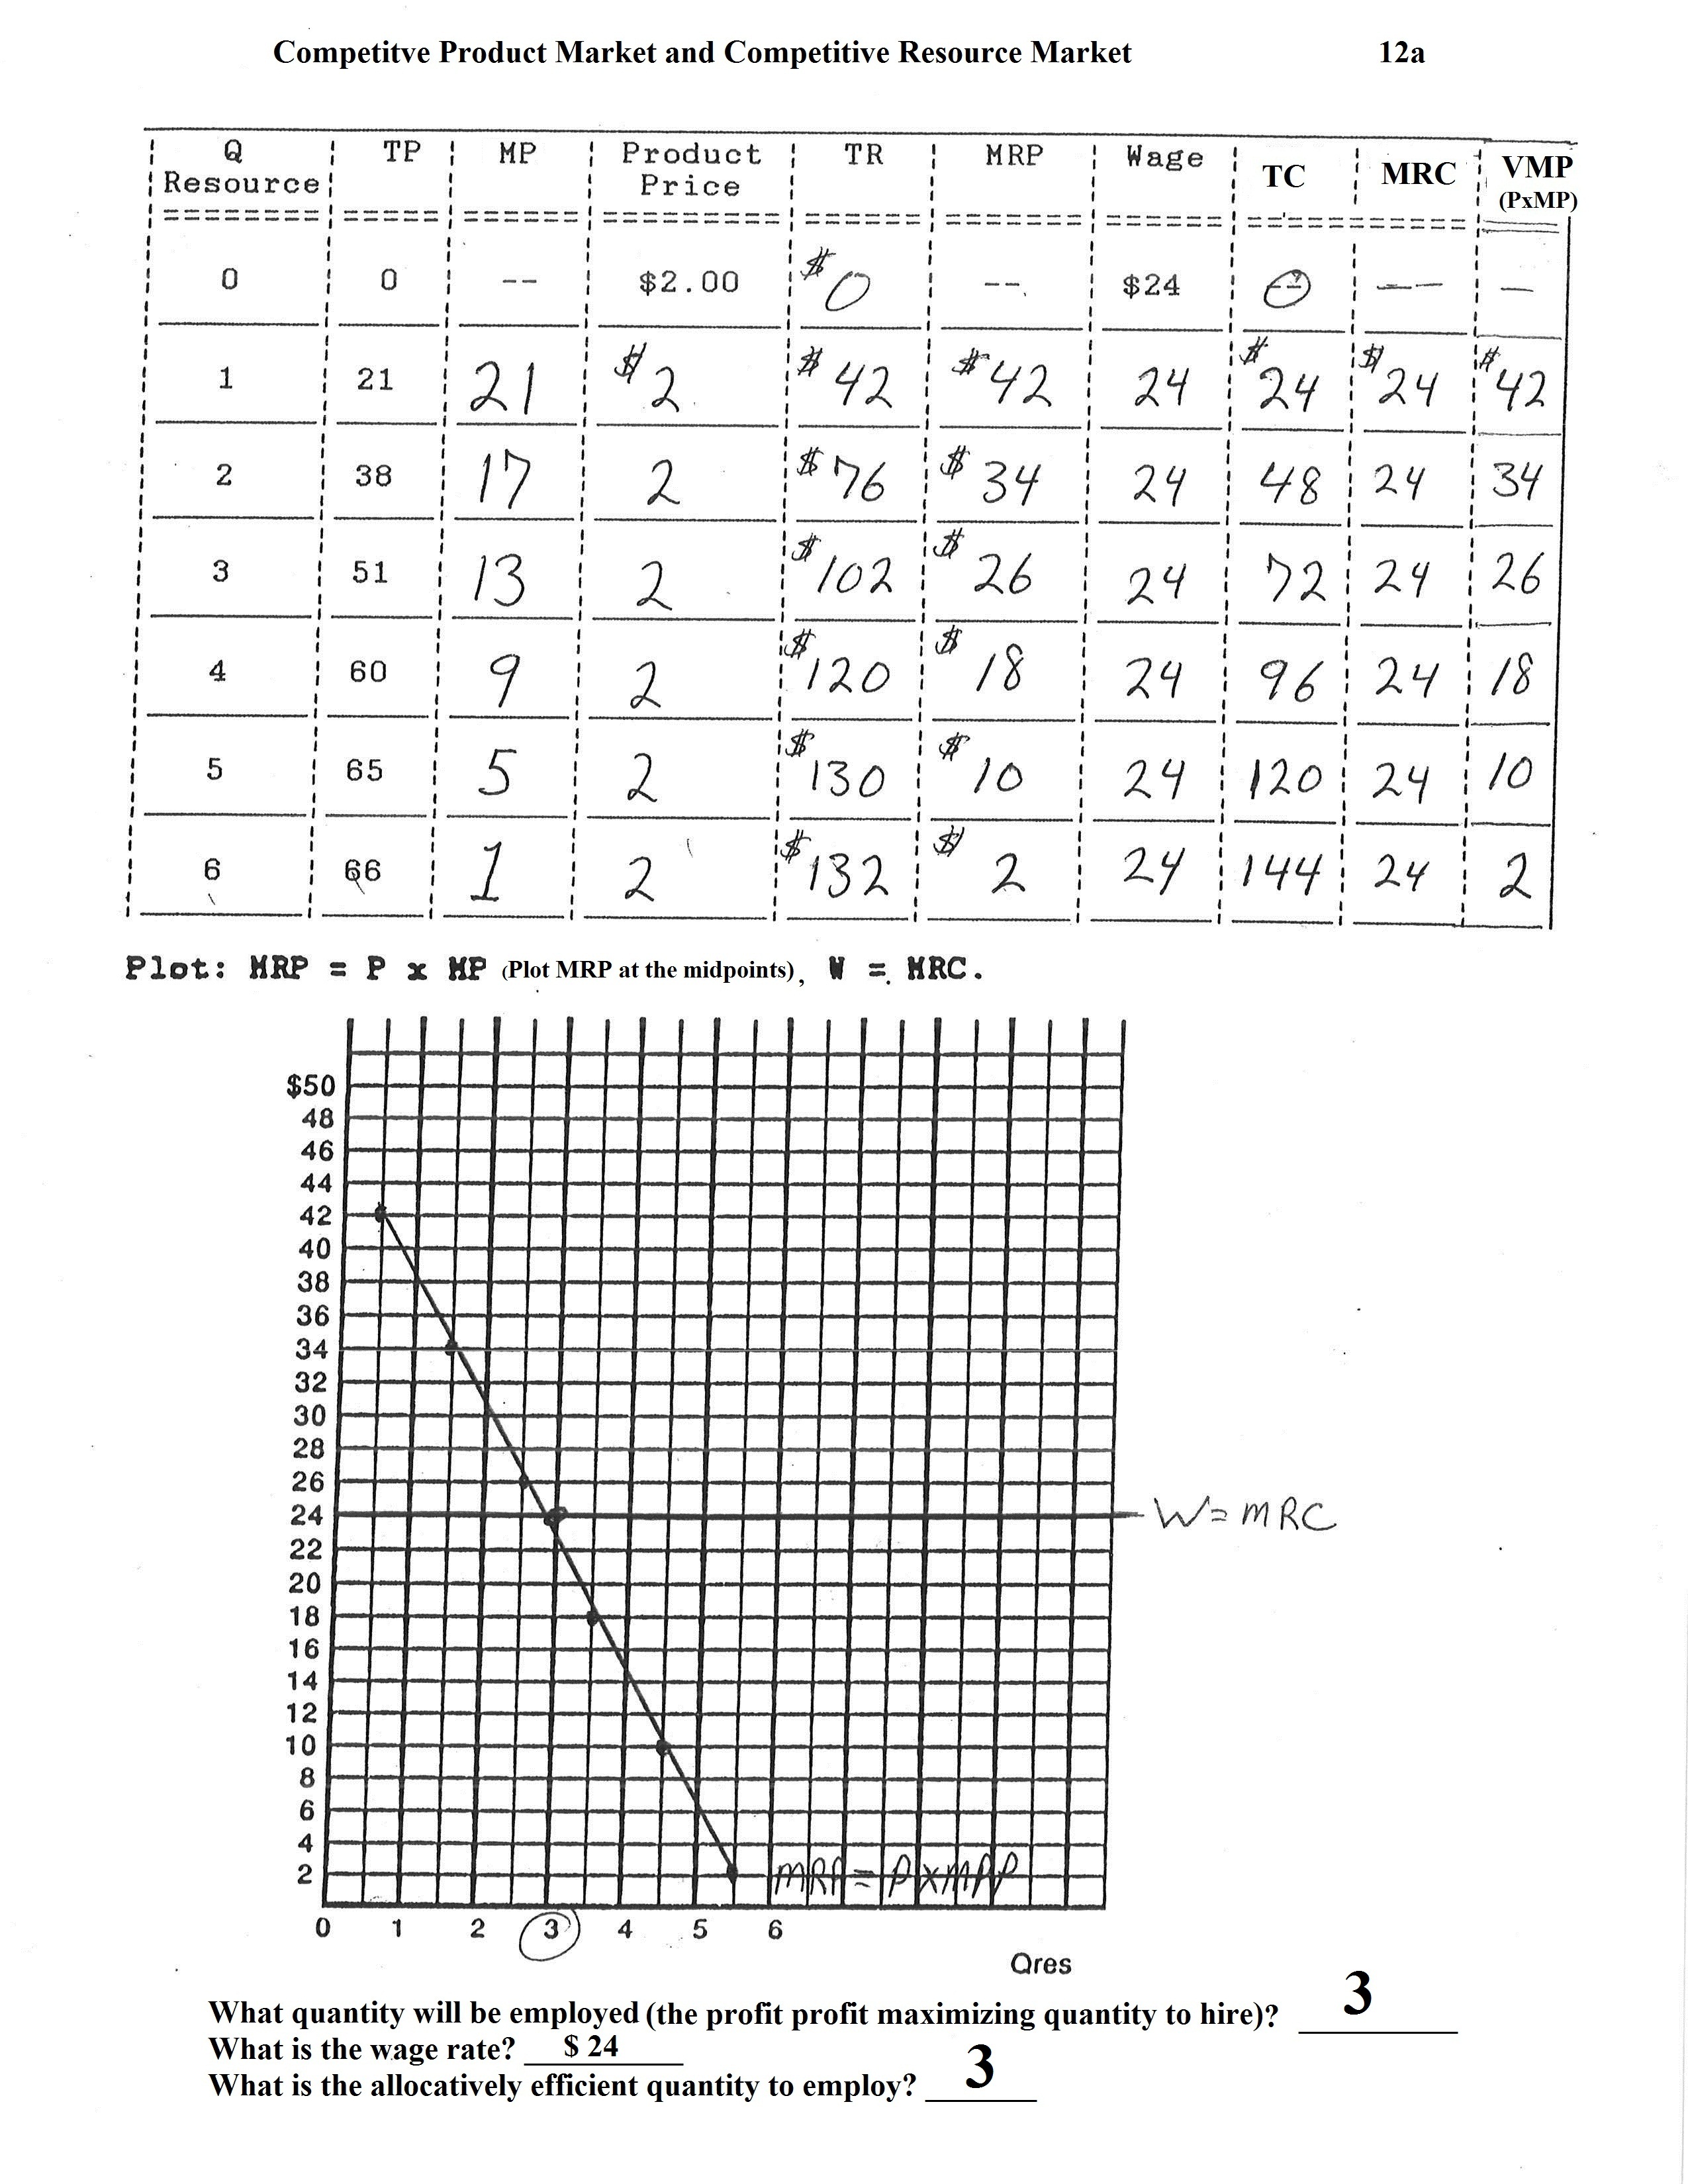 Competitve Product Market and Competitive Resource Market 12a
Q Resource TP MP Product Price TR MRP Wage TC MRC VMP (PxMP)
0 0 -- $2.00 $0 -- $24 0 -- —
1 21 21 $2 $42 $42 24 $24 $24 $42
2 38 17 2 $76 $34 24 48 24 34
3 51 13 2 $102 $26 24 72 24 26
4 60 9 2 $120 $18 24 96 24 18
5 65 5 2 $130 $10 24 120 24 10
6 66 1 2 $132 $2 24 144 24 2
Plot: MRP = P x MP (Plot MRP at the midpoints), W = MRC.
$50
48
46
44
42
40
38
36
34
32
30
28
26
24 W=MRC
22
20
18
16
14
12
10
8
6
4
2 MRP=PXMPP
0 1 2 3 4 5 6
Qres
What quantity will be employed (the profit profit maximizing quantity to hire)? 3
What is the wage rate? $ 24
What is the allocatively efficient quantity to employ? 3